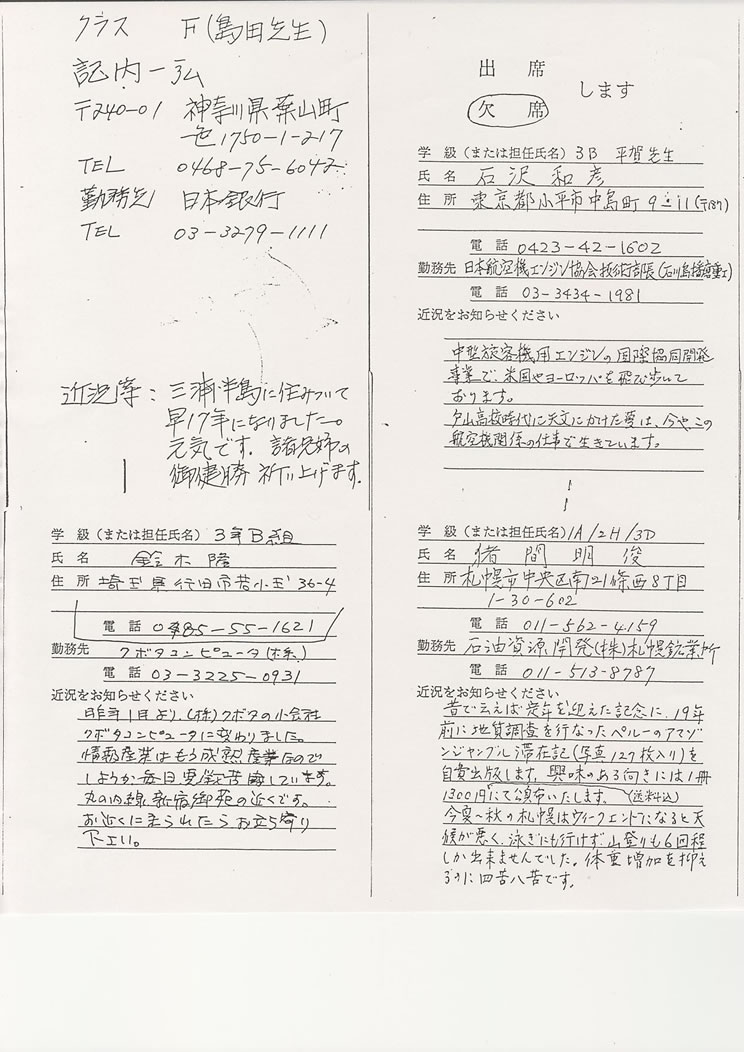 クラス F(島田先生)
記内一弘
〒240-01 神奈川県葉山町
一色1750-1-217
TEL 0468-75-6042
勤務先 日本銀行
TEL 03-3279-1111
近況等: 三浦半島に住みついて
早17年になりました。
元気です。諸兄姉の
御健勝 祈り上げます。
学級(または担任氏名)3年B組
氏名 鈴木隆
住所 埼玉県行田市若小玉36-4
電話 0485-55-1621
勤務先 クボタコンピュータ(株)
電話 03-3225-0931
近況をお知らせください
昨年1月より、(株)クボタの小会社
クボタコンピュータに変わりました。
情報産業はもう成熟産業なので
しょうか毎日悪戦苦闘しています。
丸の内線新宿御苑の近くです。
お近くに来られたらお立ち寄り
下さい。
出席
欠席
します
学級(または担任氏名)3B 平賀先生
氏名 石沢和彦
住所 東京都小平市中島町9-11(〒187)
電話 0423-42-1602
勤務先 日本航空機エンジン協会技術部長(石川島播磨重工)
電話 03-3434-1981
近況をお知らせください
中型旅客機用エンジンの国際協同開発
事業で、米国やヨーロッパを飛び歩いて
おります。
戸山高校時代に天文にかけた夢は、今や、この
航空機関係の仕事で生きています。
学級(または担任氏名)1A/2H/3D
氏名 猪間明俊
住所 札幌市中央区南21條西8丁目
1-30-602
電話 011-562-4159
勤務先 石油資源開発(株)札幌鉱業所
電話 011-513-8787
近況をお知らせください
昔で云えば定年を迎えた記念に、19年
前に地質調査を行なったペルーのアマゾ
ンジャングル滞在記(写真127枚入り)を
自費出版します。興味のある向きには1冊
1300円にて頒布いたします。(送料込)
今夏〜秋の札幌はウィークエンドになると天
候が悪く、泳ぎにも行けず、山登りも6回程
しか出来ませんでした。体重増加を抑え
るのに四苦八苦です。